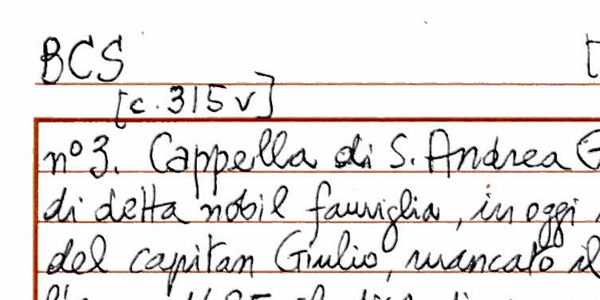 BCS
[c. 315 v]
n° 3. Cappella di S. Andrea
di detta nobil famiglia, in oggi
del capitan Giulio, mancato il